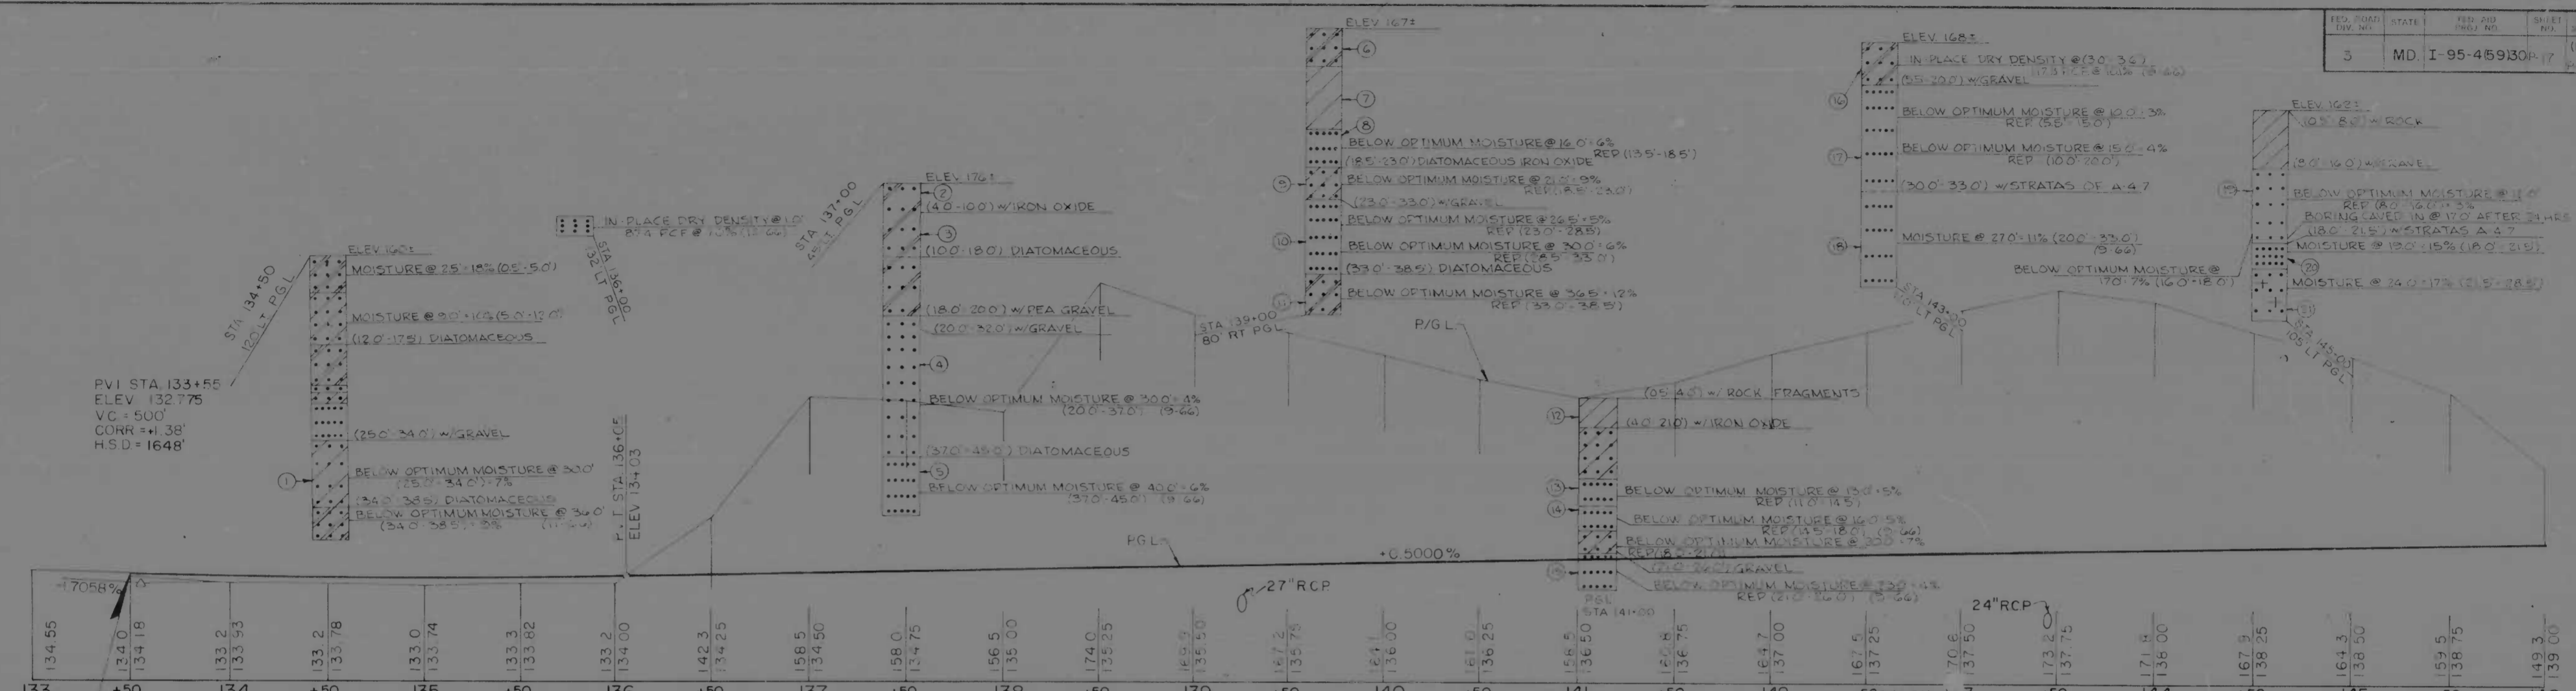 FED. ROAD DIV. NO.
STATE
FED. AID PROJ. NO.
SHEET NO.
3
MD.
I-95-4(59)30
P-17
STA 134+50
120' LT PGL
ELEV 160±
MOISTURE @ 2.5'-18% (0.5'-5.0')
MOISTURE @ 9.0'
(12.0'-17.5') DIATOMACEOUS
(25.0'-34.0') w/GRAVEL
1
BELOW OPTIMUM MOISTURE @ 30.0'
(25.0'-34.0')-7%
(34.0'-38.5') DIATOMACEOUS
BELOW OPTIMUM MOISTURE @ 36.0'
PVI STA. 133+55
ELEV 132.775
V.C. = 500'
CORR = +1.38'
H.S.D = 1648'
IN-PLACE DRY DENSITY @ 1.0'
STA 136+00
132 LT PGL
P.V.T. STA. 136+05
ELEV 134.03
STA 137+00
LT PGL
ELEV 176±
2
(4.0'-10.0') w/IRON OXIDE
3
(10.0'-18.0') DIATOMACEOUS
(18.0'-20.0') w/PEA GRAVEL
(20.0'-32.0') w/GRAVEL
4
BELOW OPTIMUM MOISTURE @ 30.0'-4%
(20.0'-37.0') (9-66)
(37.0'-45.0') DIATOMACEOUS
5
BELOW OPTIMUM MOISTURE @ 40.0'-6%
(37.0'-45.0') (9-66)
ELEV 167±
6
7
8
BELOW OPTIMUM MOISTURE @ 16.0'-6%
REP (13.5'-18.5')
(18.5'-23.0') DIATOMACEOUS IRON OXIDE
9
BELOW OPTIMUM MOISTURE @ 21.0'-9%
REP (18.5'-23.0')
(23.0'-33.0') w/GRAVEL
BELOW OPTIMUM MOISTURE @ 26.5'-5%
REP (23.0'-28.5')
10
BELOW OPTIMUM MOISTURE @ 30.0'-6%
REP (28.5'-33.0')
(33.0'-38.5') DIATOMACEOUS
11
BELOW OPTIMUM MOISTURE @ 36.5'-12%
REP (33.0'-38.5')
STA 139+00
80' RT PGL
P/GL
(0.5'-4.0') w/ ROCK FRAGMENTS
12
(4.0'-21.0') w/IRON OXIDE
13
BELOW OPTIMUM MOISTURE @ 13.0'-5%
REP (11.0'-14.5')
14
BELOW OPTIMUM MOISTURE @ 16.0'-5%
REP (14.5'-18.0') (9-66)
BELOW OPTIMUM MOISTURE @ 20.0'-7%
REP (18.0'-21.0')
(21.0'-26.0') GRAVEL
BELOW OPTIMUM MOISTURE @ 23.0'-4%
REP (21.0'-26.0') (9-66)
PGL
STA 141+00
ELEV 168±
IN-PLACE DRY DENSITY @ (3.0'-3.6')
16
(5.5'-20.0') w/GRAVEL
BELOW OPTIMUM MOISTURE @ 10.0'-3%
REP (5.5'-15.0')
17
BELOW OPTIMUM MOISTURE @ 15.0'-4%
REP (10.0'-20.0')
(30.0'-33.0') w/STRATAS OF A-4-7
18
MOISTURE @ 27.0'-11% (20.0'-33.0')
(9-66)
STA 143+00
LT PGL
ELEV 162±
(0.5'-8.0') w/ROCK
(8.0'-16.0') w/GRAVEL
BELOW OPTIMUM MOISTURE @
REP (8.0'-16.0')-3%
BORING CAVED IN @ 17.0' AFTER 24 HRS
(18.0'-21.5') w/STRATAS A-4-7
MOISTURE @ 19.0'-15% (18.0'-21.5')
BELOW OPTIMUM MOISTURE @
17.0'-7% (16.0'-18.0')
20
MOISTURE @ 24.0'-17% (21.5'-28.5')
21
STA 145+00
105' LT PGL
PGL
+0.5000%
27" RCP
24" RCP
-1.7058%
134.55
134.0 134.18
133.2 133.93
133.2 133.78
133.0 133.74
133.3 133.82
133.2 134.00
142.3 134.25
158.5 134.50
158.0 134.75
156.5 135.00
174.0 135.25
169.9 135.50
167.2 135.75
136.00
161.0 136.25
158.5 136.50
160.8 136.75
164.7 137.00
167.5 137.25
170.6 137.50
173.2 137.75
171.8 138.00
167.9 138.25
164.3 138.50
159.5 138.75
149.3 139.00
133 +50 134 +50 135 +50 136 +50 137 +50 138 +50 139 +50 140 +50 141 +50 142